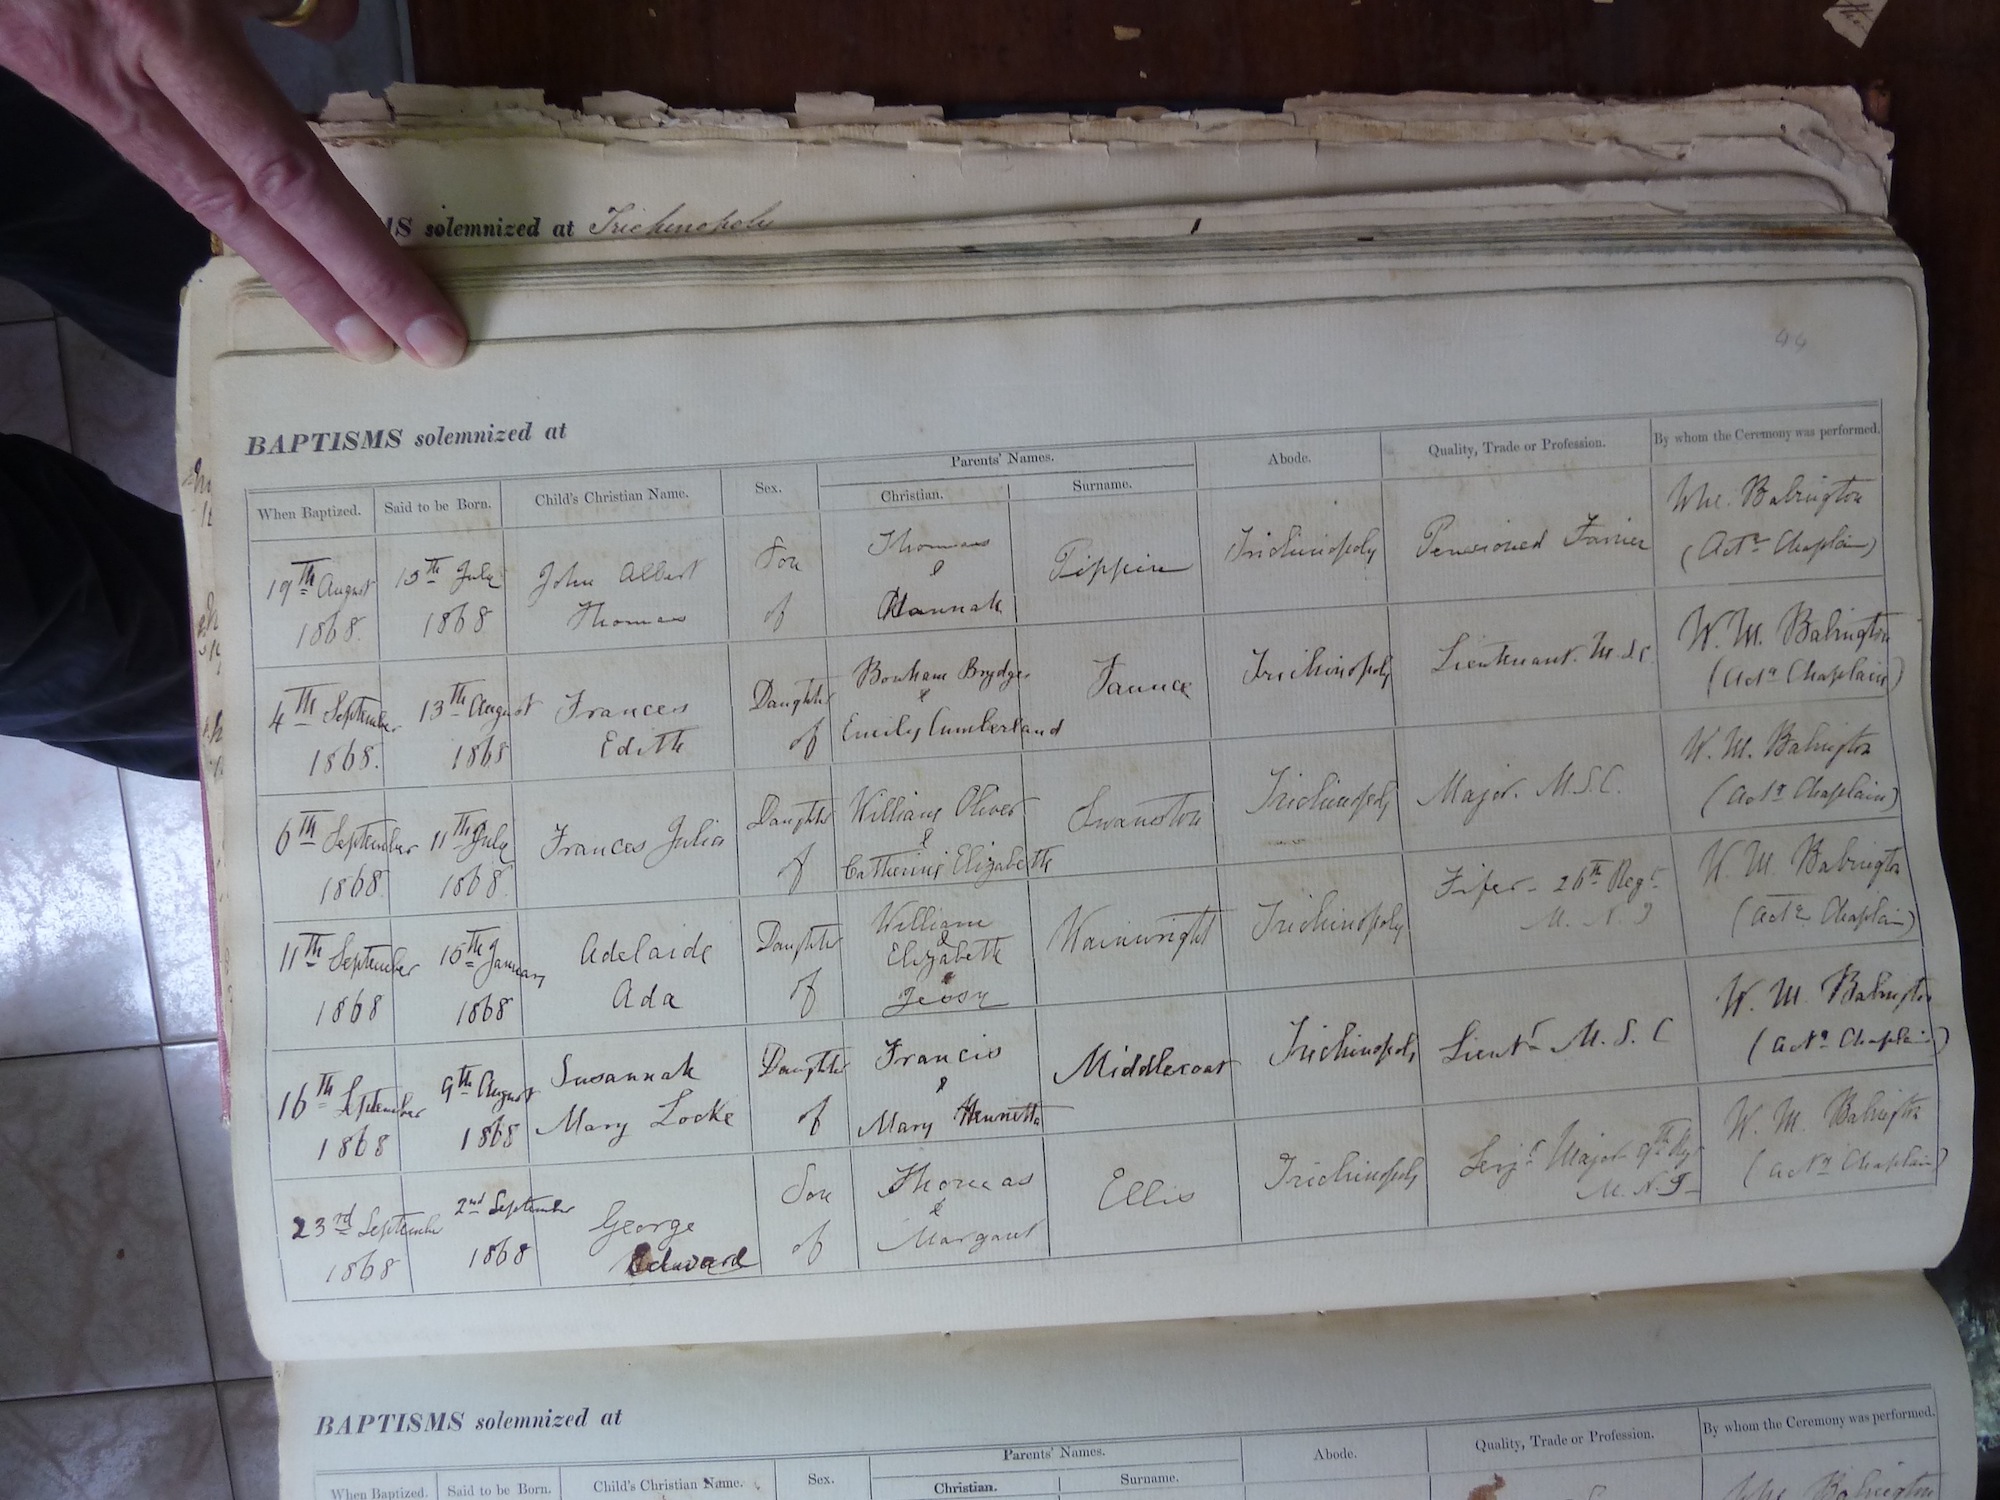 MS solemnized at Trichinopoly
44
BAPTISMS solemnized at
When Baptized. Said to be Born. Child's Christian Name. Sex. Parents' Names. Christian. Surname. Abode. Quality, Trade or Profession. By whom the Ceremony was performed.
19th August 1868. 15th July 1868 John Albert Thomas Son of Thomas & Hannah Pippin Trichinopoly Pensioned Farrier Wm. Babington (Actg Chaplain)
4th September 1868. 13th August 1868 Frances Edith Daughter of Bonham Brydges & Emily Cumberland Faunce Trichinopoly Lieutenant. M.S.C. W. M. Babington (Actg Chaplain)
6th September 1868 11th July 1868. Frances Julia Daughter of William Oliver & Catherine Elizabeth Swanston Trichinopoly Major. M.S.C. W. M. Babington (Actg Chaplain)
11th September 1868 15th January 1868 Adelaide Ada Daughter of William & Elizabeth Jessy Wainwright Trichinopoly Fifer - 26th Regt M. N. I W. M. Babington (Actg Chaplain)
16th September 1868 9th August 1868 Susannah Mary Locke Daughter of Francis & Mary Henrietta Middlecoat Trichinopoly Lieut M. S. C W. M. Babington (Actg Chaplain)
23rd September 1868 2nd September 1868 George Edward Son of Thomas & Margaret Ellis Trichinopoly Serjt Major 9th Rgt M. N. I W. M. Babington (Actg Chaplain)
BAPTISMS solemnized at
When Baptized. Said to be Born. Child's Christian Name. Sex. Parents' Names. Christian. Surname. Abode. Quality, Trade or Profession. By whom the Ceremony was performed.
Wm Babington